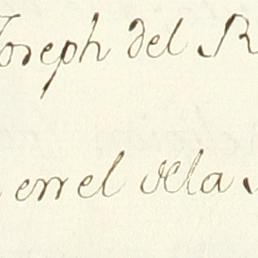 Joseph del R
errel dela